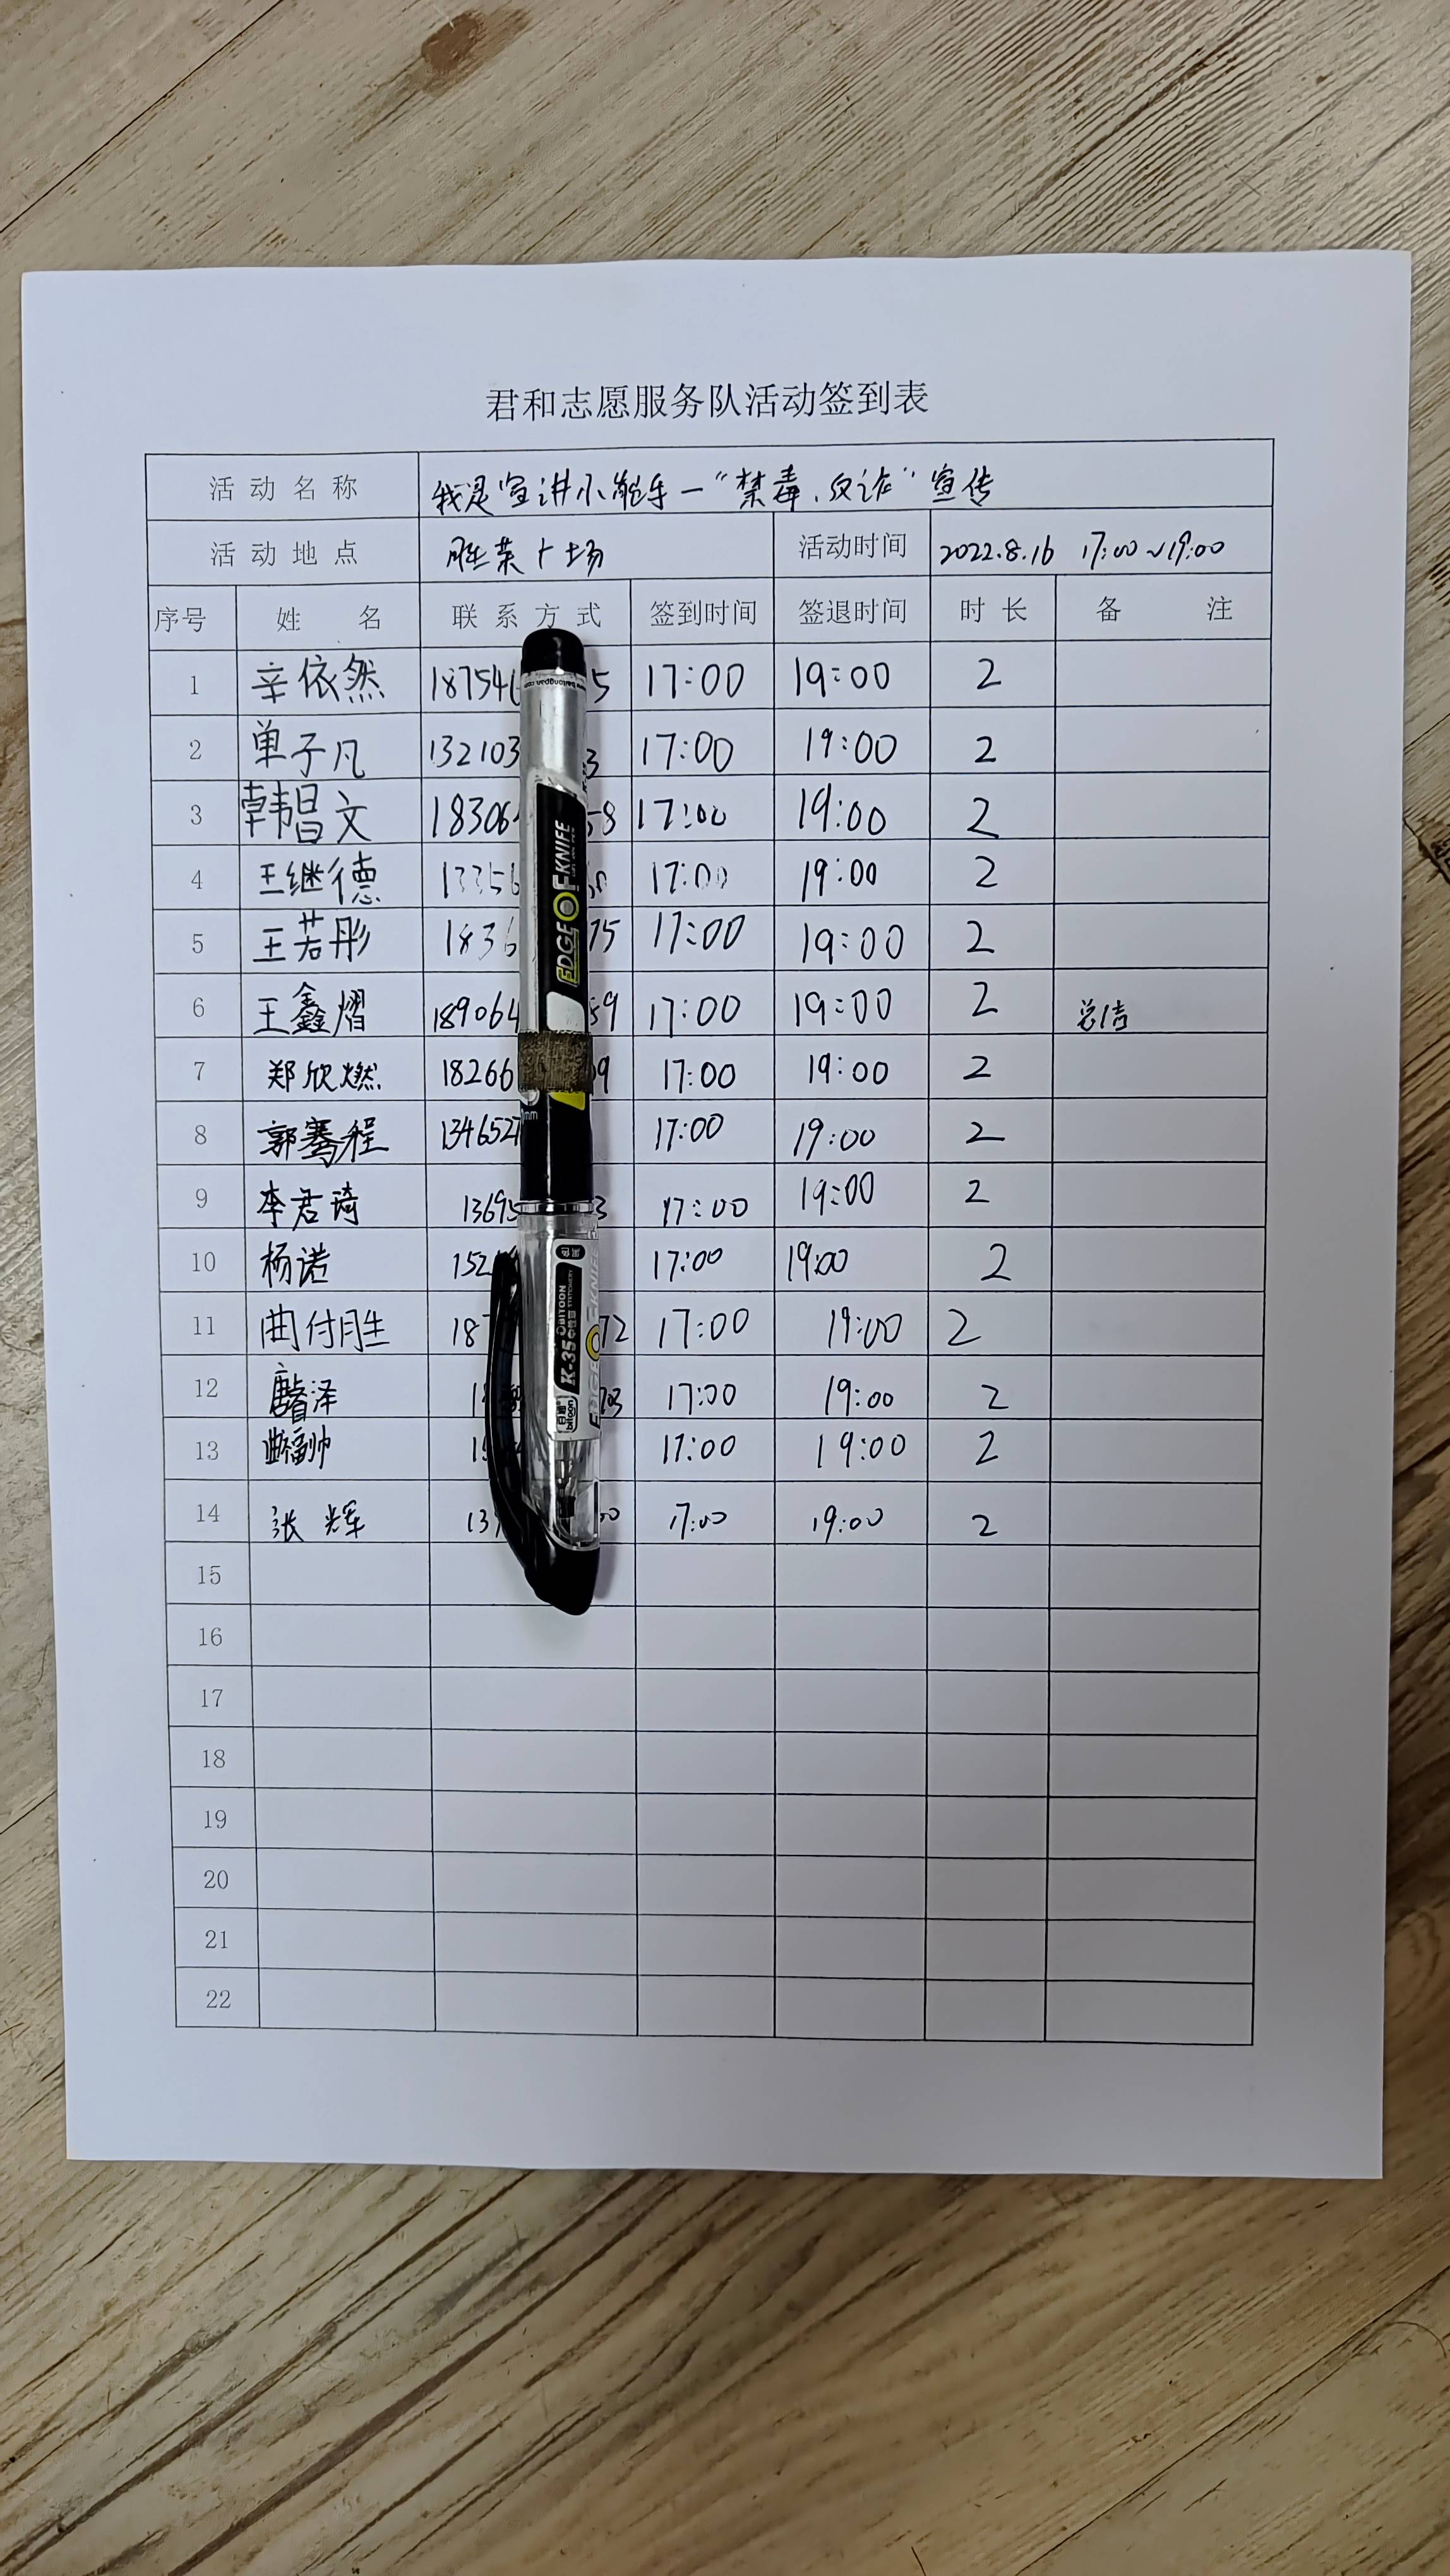 君和志愿服务队活动签到表
活动名称 我是宣讲小能手—“禁毒、反诈”宣传
活动地点 胜荣广场 活动时间 2022.8.16 17:00~19:00
序号 姓名 联系方式 签到时间 签退时间 时长 备注
1 辛依然 18754 5 17:00 19:00 2
2 单子凡 132103 3 17:00 19:00 2
3 韩昌文 18306 58 17:00 19:00 2
4 王继德 13356 17:00 19:00 2
5 王若彤 1836 75 17:00 19:00 2
6 王鑫熠 189064 59 17:00 19:00 2 总结
7 郑欣燃 18266 9 17:00 19:00 2
8 郭骞程 134652 17:00 19:00 2
9 李君琦 13695 3 17:00 19:00 2
10 杨诺 152 17:00 19:00 2
11 曲付胜 18 72 17:00 19:00 2
12 泽 1 03 17:00 19:00 2
13 17:00 19:00 2
14 张辉 13 00 17:00 19:00 2
15
16
17
18
19
20
21
22
EDGE OF KNIFE
K-35
BITOON
STATIONERY
bitoon
EDGE OF KNIFE
mm